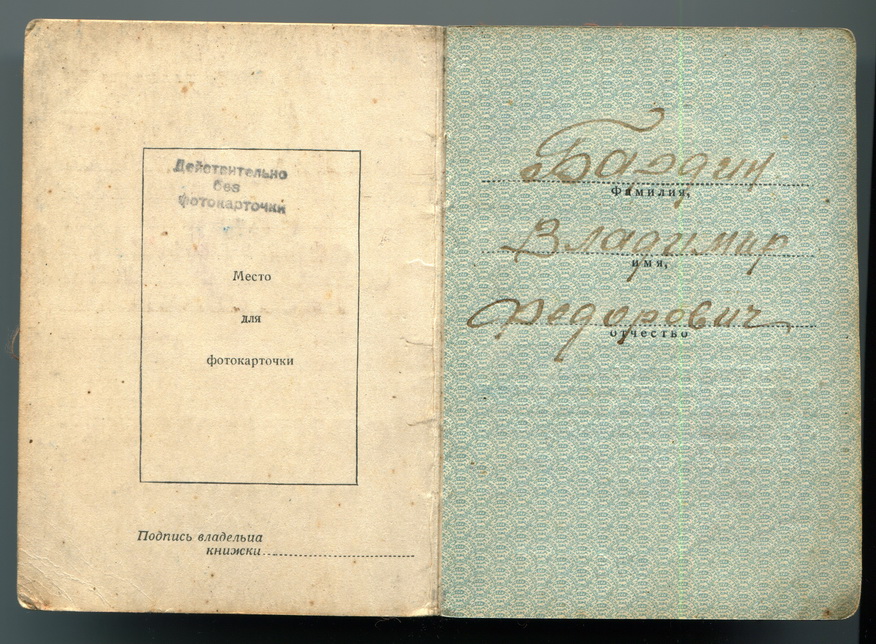 Действительно
без
фотокарточки
Место
для
фотокарточки
Подпись владельца
книжки
Баздин
фамилия,
Владимир
имя,
Федорович
отчество